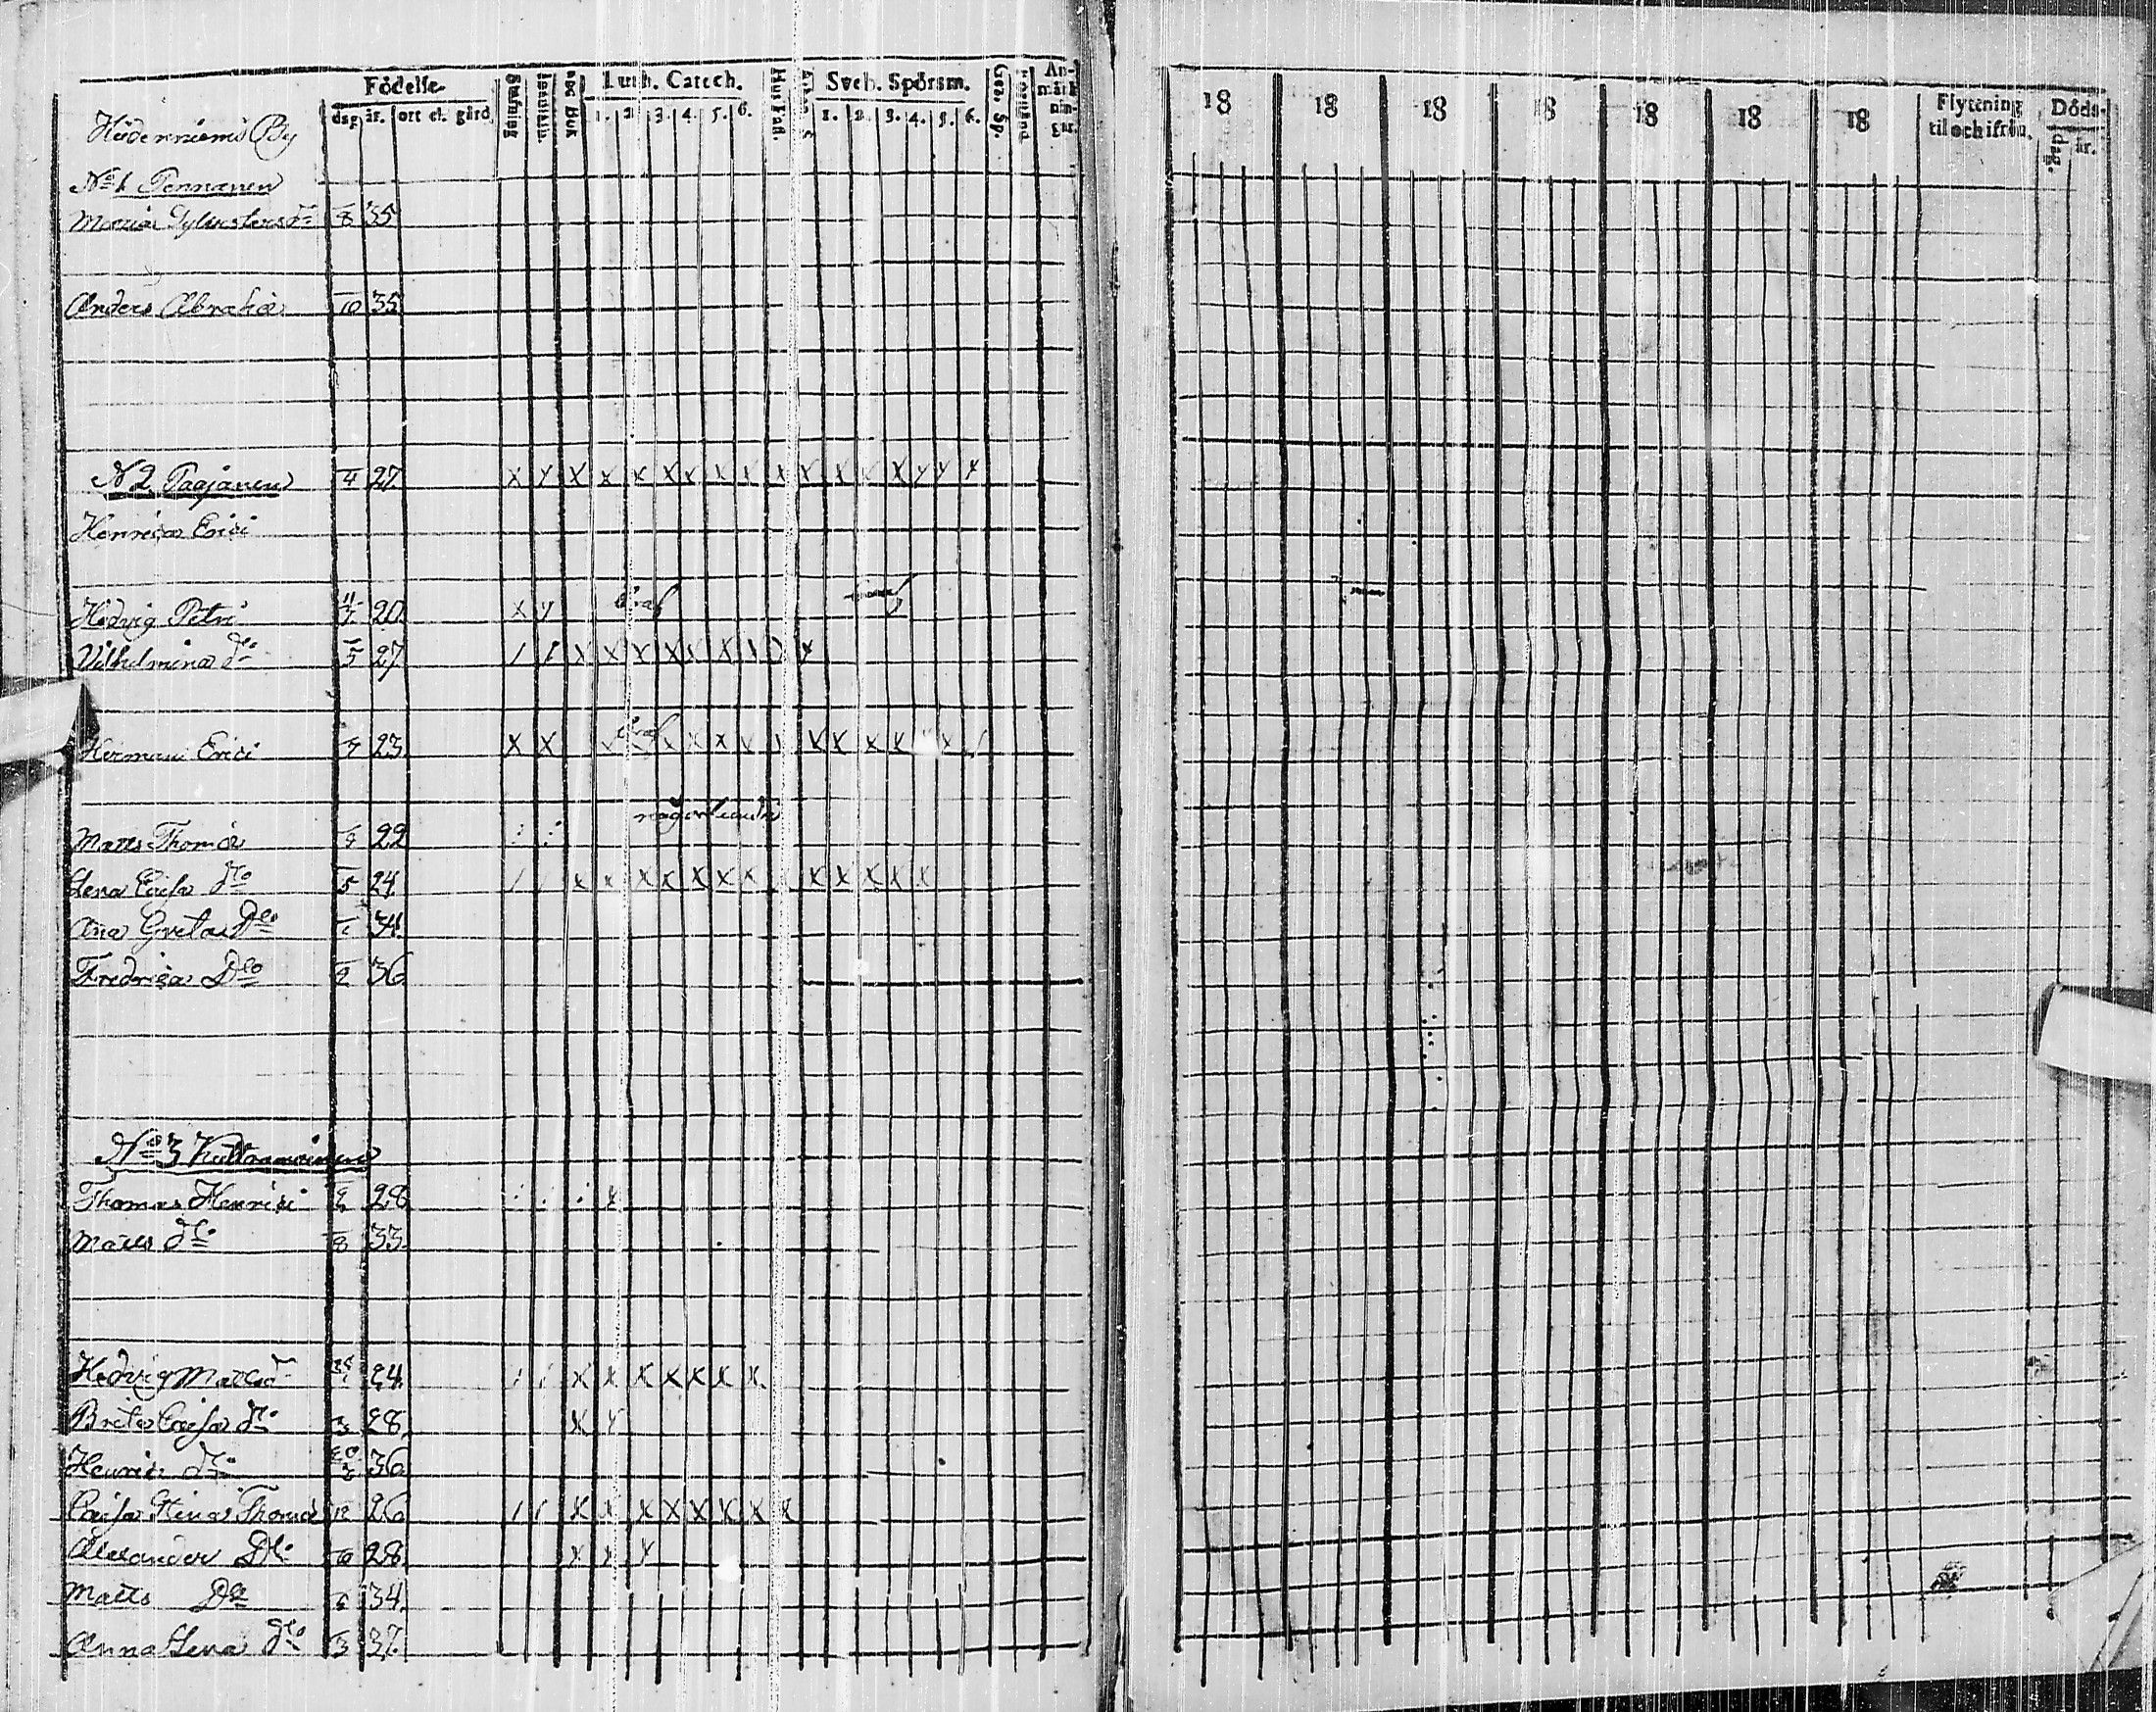 Födelse
Stafning
Luth. Catech.
Hus Tafl.
Sveb. Spörsm.
Gez. Sp.
An-
märk
nin-
gar.
dag
år.
ort el. gård
1. 2. 3. 4. 5. 6.
1. 2. 3. 4. 5. 6.
18 18 18 18 18 18 18
Flyttning
til och ifrån.
Döds-
dag.
år.
By
No 1 Pennanen
Maria Sylvesters dr 8 35
Anders Abraha 10 35
N 2 Paajanen 4 27 x y x x x x x x x x x x x x y y x
Henrica Erici
Hedvig Petri 20 x y braf
Vilhelmina do 5 27 / / x x x x x x x x x
Hermani Erici 23 x x braf x x x x x x x x x
någorlunda
Matts Thomæ 9 22
Lena Caisa do 5 24 / / x x x x x x x x x x x x
Ana Greta Do 34
Fredrica Do 2 36
No 3
Thomas Henrici 28
Matts do 8 33
Hedvig Matts dr 24 / / x x x x x x x
Breta Caisa do 3 28 x x
Henric do 36
Caisa Stina Thomæ 12 26 / / x x x x x x x x
Alexander Do 10 28 x x x
Matts Do 34
Anna Lena do 3 37